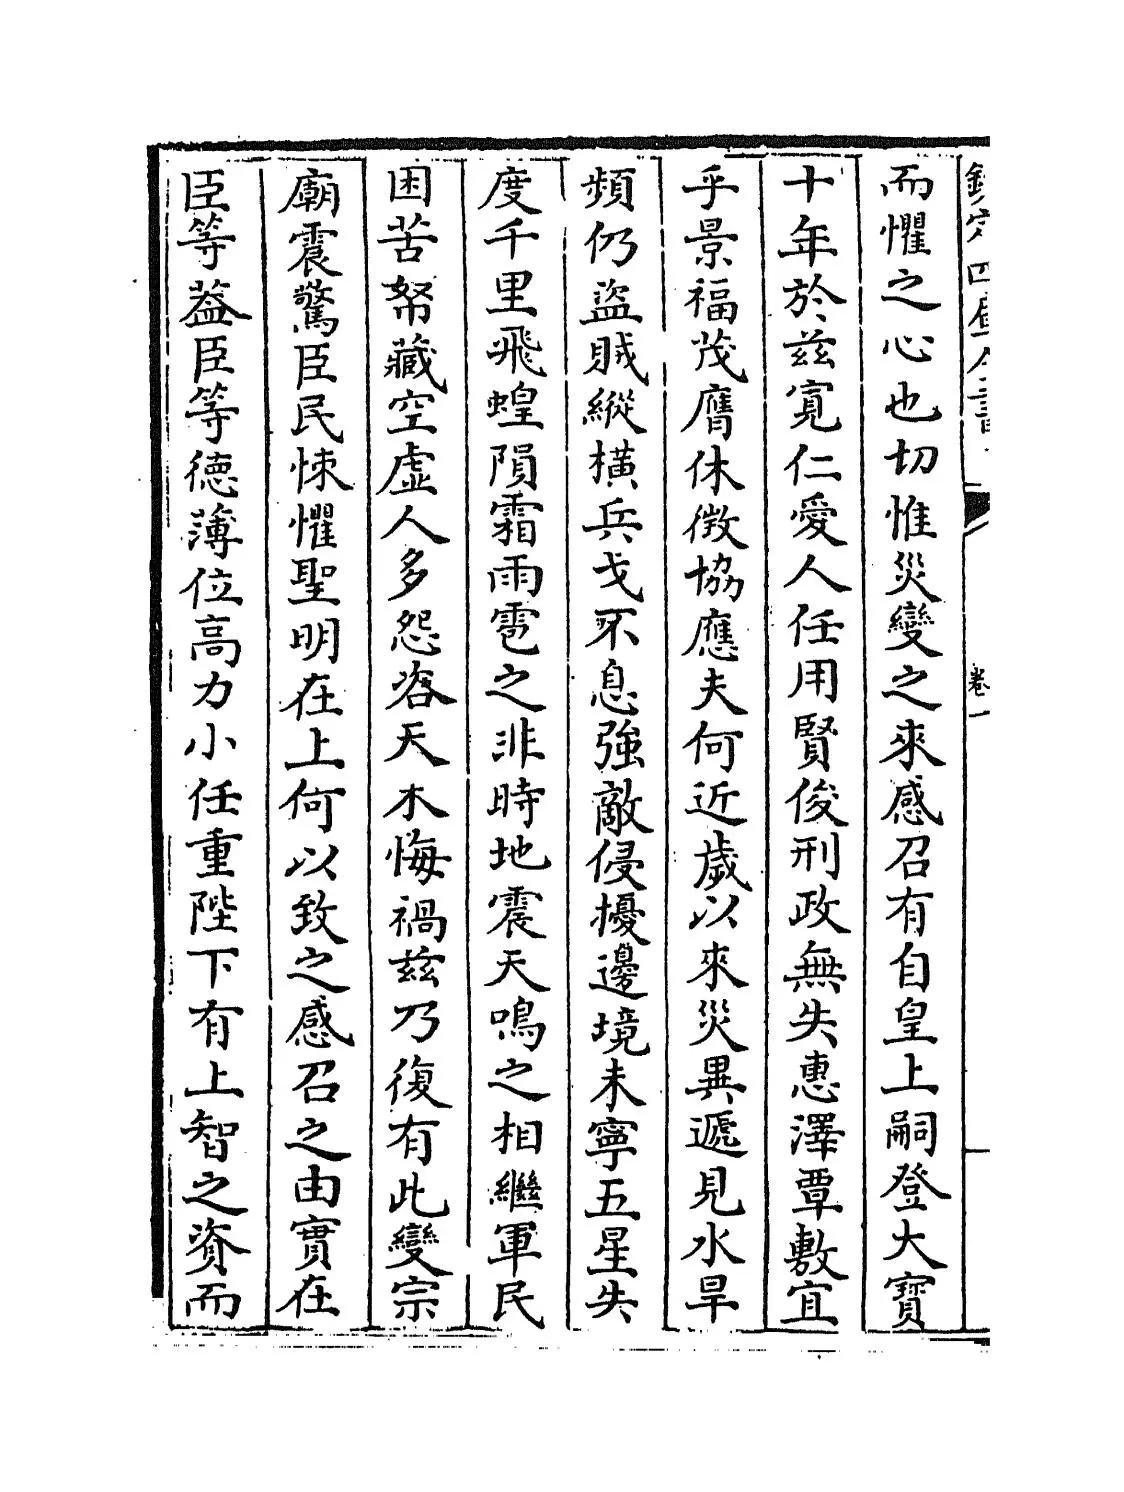 欽定四庫全書
卷一
而懼之心也切惟災變之來感召有自皇上嗣登大寶
十年於兹寛仁愛人任用賢俊刑政無失惠澤覃敷宜
乎景福茂膺休徴協應夫何近歲以來災異遞見水旱
頻仍盜賊縱橫兵戈不息強敵侵擾邊境未寧五星失
度千里飛蝗隕霜雨雹之非時地震天鳴之相繼軍民
困苦帑藏空虛人多怨咨天未悔禍兹乃復有此變宗
廟震驚臣民悚懼聖明在上何以致之感召之由實在
臣等葢臣等德薄位高力小任重陛下有上智之資而